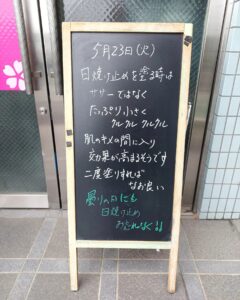 5月23日(火)
日焼け止めを塗る時は
ササーではなく
たっぷり小さく
クルクル クルクル
肌のキメの間に入り
効果が高まるそうです
二度塗りすれば
なお良い
曇りの日にも
日焼け止め
お忘れなく!!